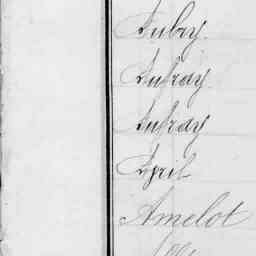 Aubry.
Aufray
Aufray
April
Amelot